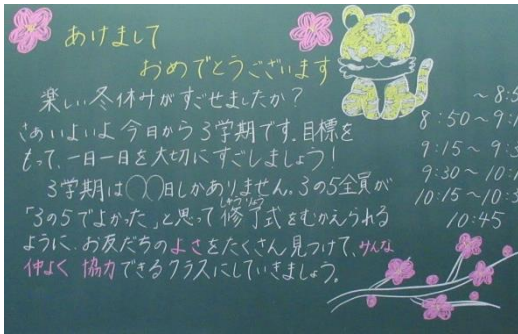 あけまして
おめでとうございます
楽しい冬休みがすごせましたか?
さぁいよいよ今日から3学期です。目標を
もって、一日一日を大切にすごしましょう!
3学期は〇〇日しかありません。3の5全員が
「3の5でよかった」と思って修了式をむかえられる
しゅうりょう
ように、お友だちのよさをたくさん見つけて、みんな
仲よく協力できるクラスにしていきましょう。
~8:5
8:50~9:1
9:15~9:3
9:30~10:1
10:15~10:3
10:45